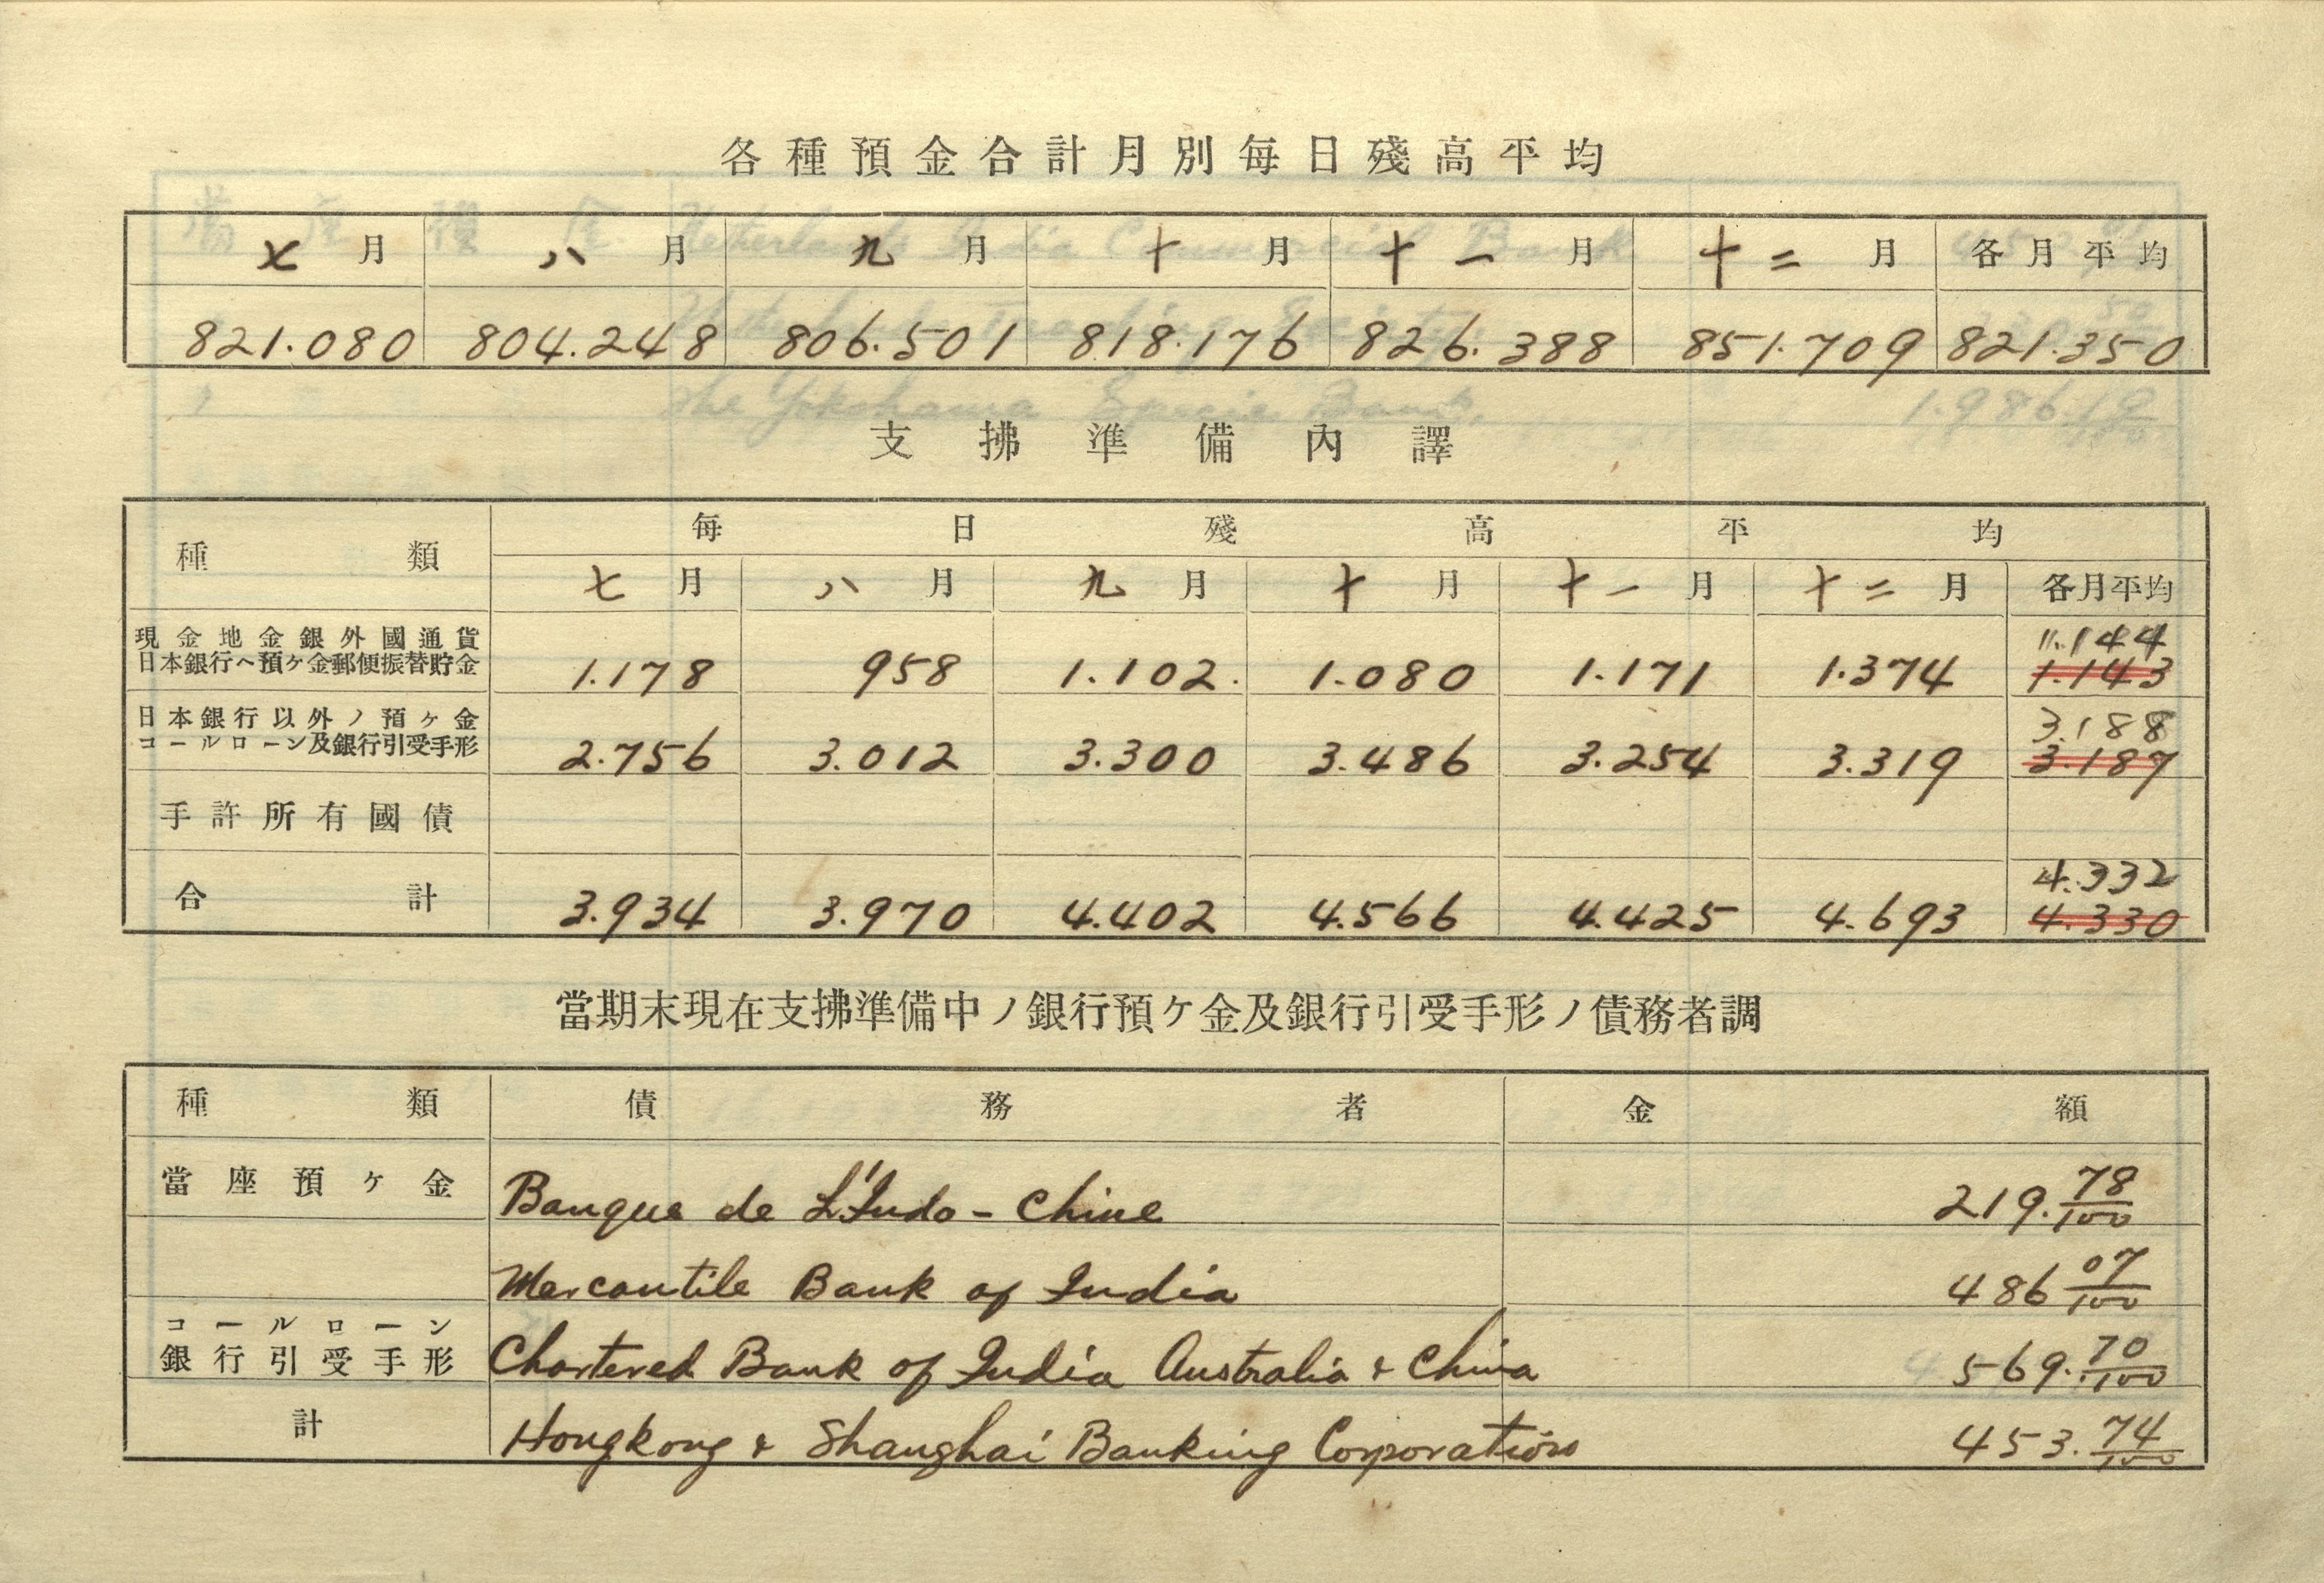 各種預金合計月別每日殘高平均
七月 八月 九月 十月 十一月 十二月 各月平均
821.080 804.248 806.501 818.176 826.388 851.709 821.350
支拂準備內譯
種類 每日殘高平均
七月 八月 九月 十月 十一月 十二月 各月平均
現金地金銀外國通貨 1.144
日本銀行ヘ預ケ金郵便振替貯金 1.178 958 1.102. 1.080 1.171 1.374 1.143
日本銀行以外ノ預ケ金 3.188
コールローン及銀行引受手形 2.756 3.012 3.300 3.486 3.254 3.319 3.187
手許所有國債
4.332
合計 3.934 3.970 4.402 4.566 4.425 4.693 4.330
當期末現在支拂準備中ノ銀行預ケ金及銀行引受手形ノ債務者調
種類 債務者 金額
當座預ケ金 Banque de L'Indo-Chine 219.78/100
Mercantile Bank of India 486 07/100
コールローン
銀行引受手形 Chartered Bank of India Australia & China 569.70/100
計 Hongkong & Shanghai Banking Corporation 453.74/100